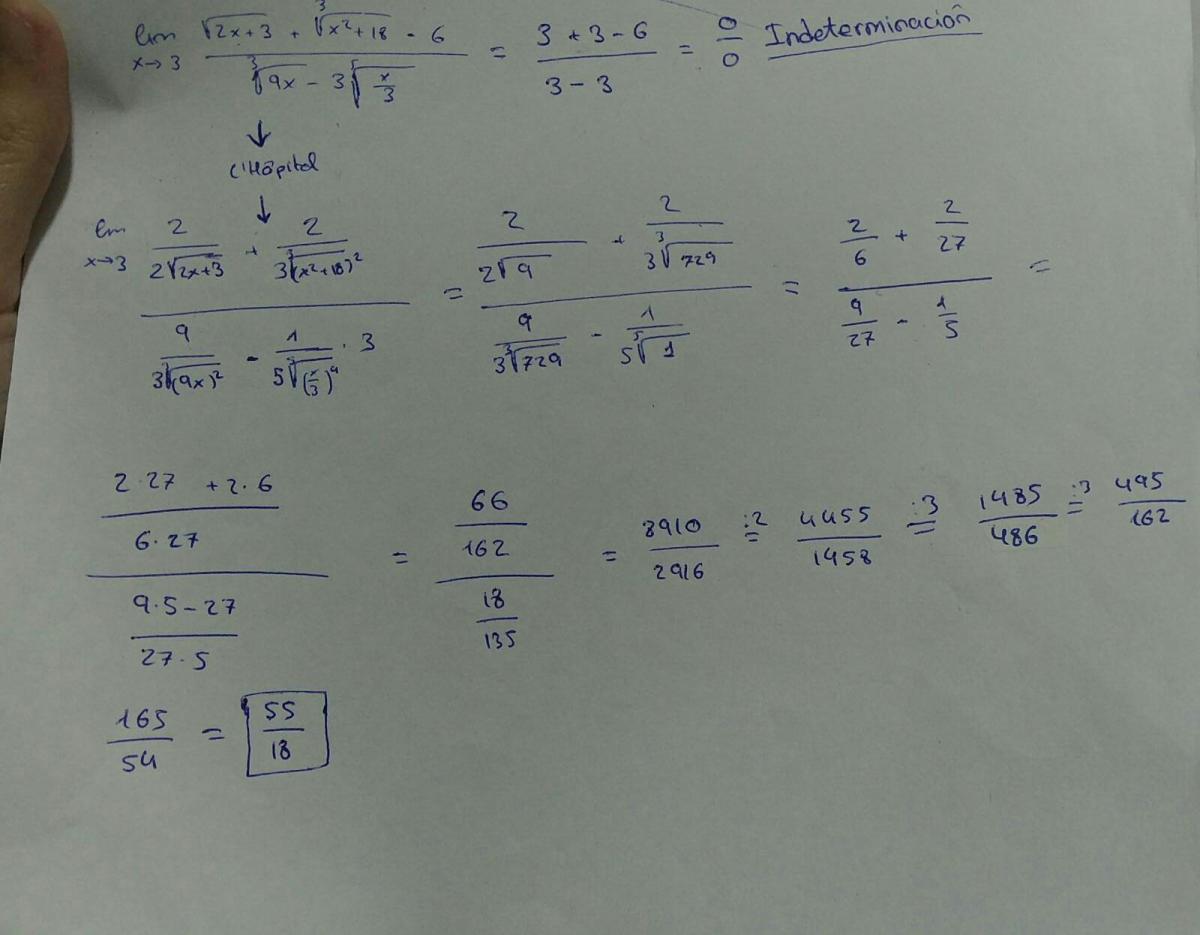 lim x→3 (√(2x+3) + ∛(x²+18) - 6) / (∛(9x) - 3 ⁵√(x/3)) = (3+3-6) / (3-3) = 0/0 Indeterminación
↓
L'Hôpital
↓
lim x→3 (2/(2√(2x+3)) + 2/(3∛(x²+18)²)) / (9/(3∛(9x)²) - 1/(5 ⁵√(x/3)⁴) · 3) = (2/(2√9) + 2/(3∛729)) / (9/(3∛729) - 1/(5 ⁵√1)) = (2/6 + 2/27) / (9/27 - 1/5) =
((2·27 + 2·6)/(6·27)) / ((9·5-27)/(27·5)) = (66/162) / (18/135) = 8910/2916 :2 = 4455/1458 :3 = 1485/486 :3 = 495/162
165/54 = 55/18